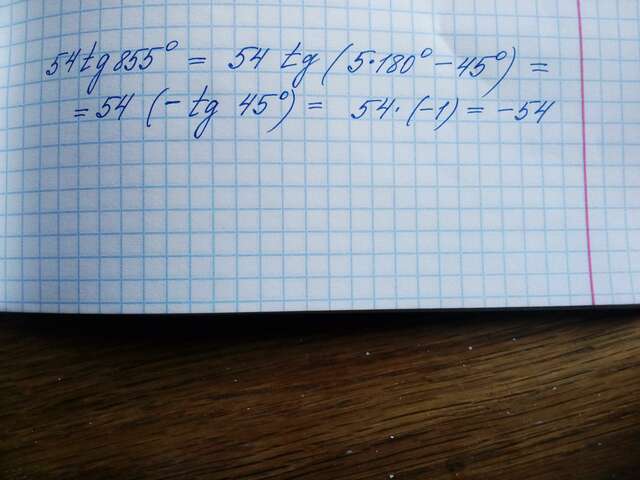 54tg855° = 54 tg (5·180° – 45°) =
= 54 (– tg 45°) = 54· (–1) = –54